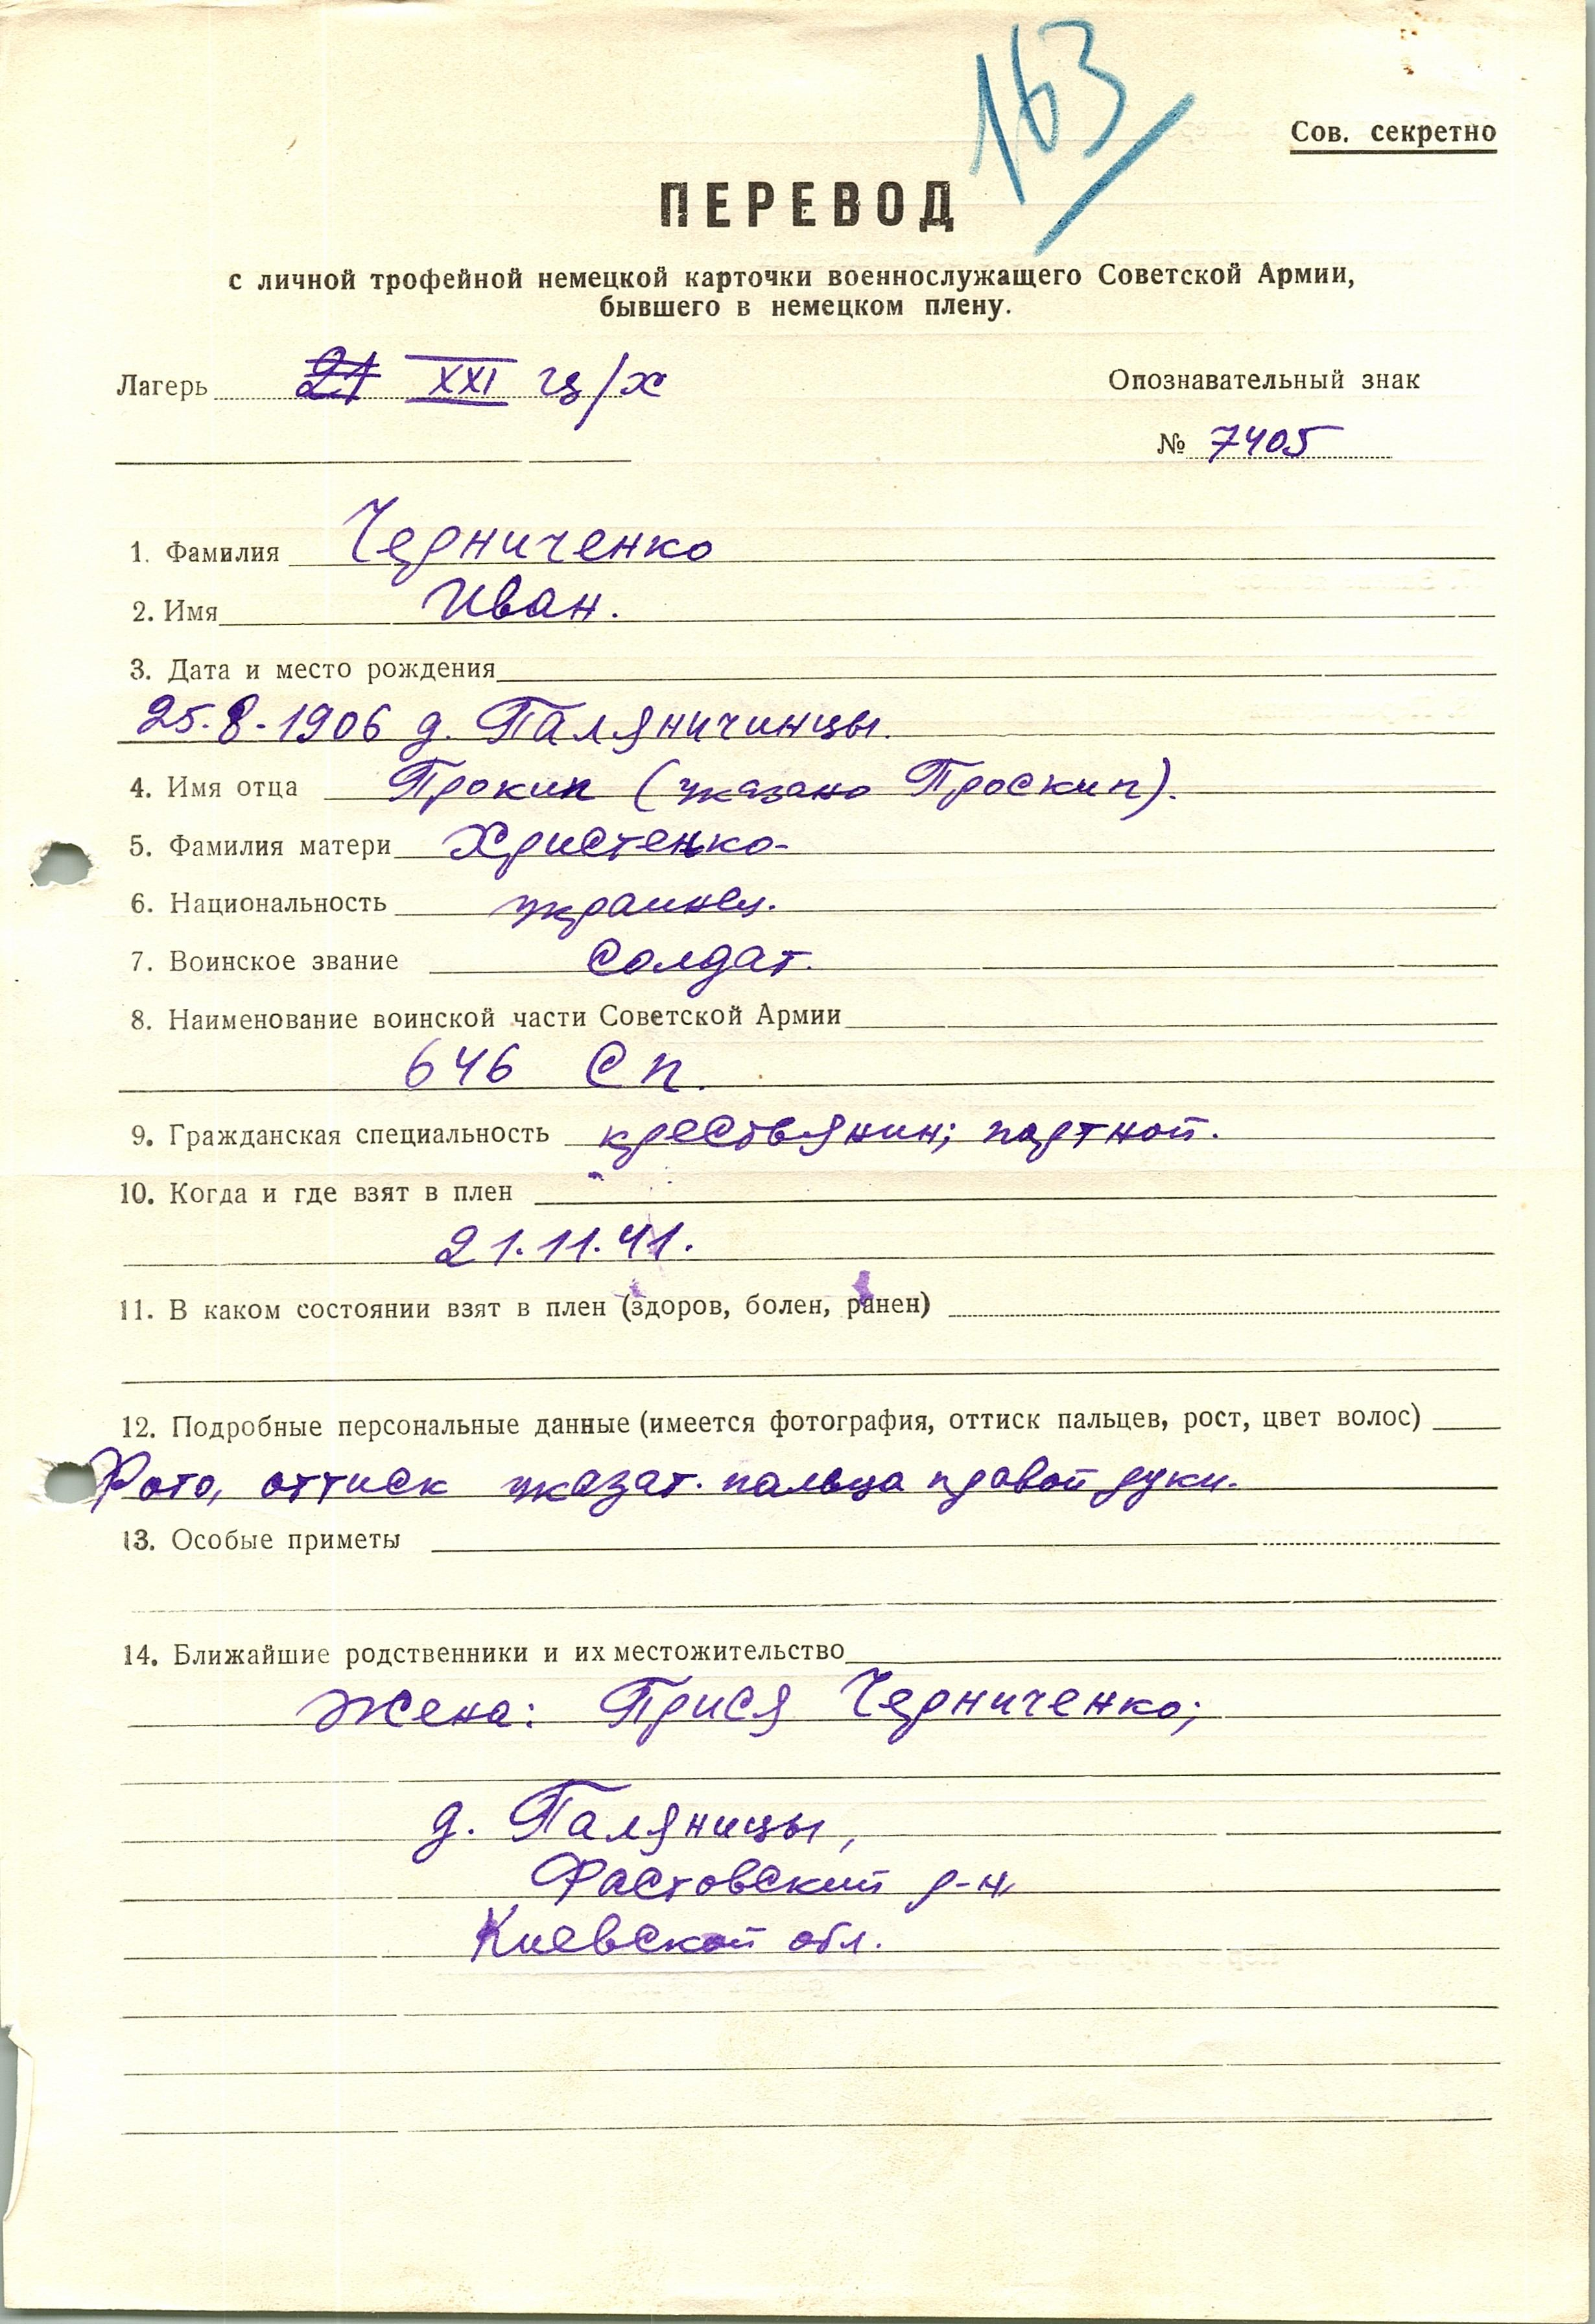 163
Сов. секретно
ПЕРЕВОД
с личной трофейной немецкой карточки военнослужащего Советской Армии,
бывшего в немецком плену.
Лагерь 21 XXI ц/х
Опознавательный знак
№ 7405
1. Фамилия Черниченко
2. Имя Иван.
3. Дата и место рождения
25.8-1906 д. Паляничинцы.
4. Имя отца Прокип (указано Проскип).
5. Фамилия матери Христенко-
6. Национальность украинец.
7. Воинское звание солдат.
8. Наименование воинской части Советской Армии
646 сп.
9. Гражданская специальность крестьянин; портной.
10. Когда и где взят в плен
21.11.41.
11. В каком состоянии взят в плен (здоров, болен, ранен)
12. Подробные персональные данные (имеется фотография, оттиск пальцев, рост, цвет волос)
Фото, оттиск указат. пальца правой руки.
13. Особые приметы
14. Ближайшие родственники и их местожительство
Жена: Прися Черниченко;
д. Паляницы,
Фастовский р-н
Киевской обл.